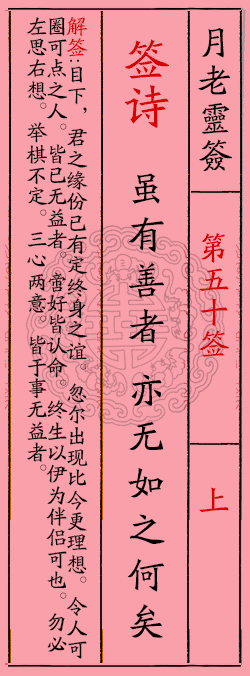 月老靈簽
第五十签
上
签诗
虽有善者 亦无如之何矣
解签:目下,君之缘份已有定终身之谊。忽尔出现比今更理想。令人可
圈可点之人。皆已无益者。蛮好皆认命。终生以伊为伴侣可也。勿必
左思右想。举棋不定。三心两意 皆于事无益者。